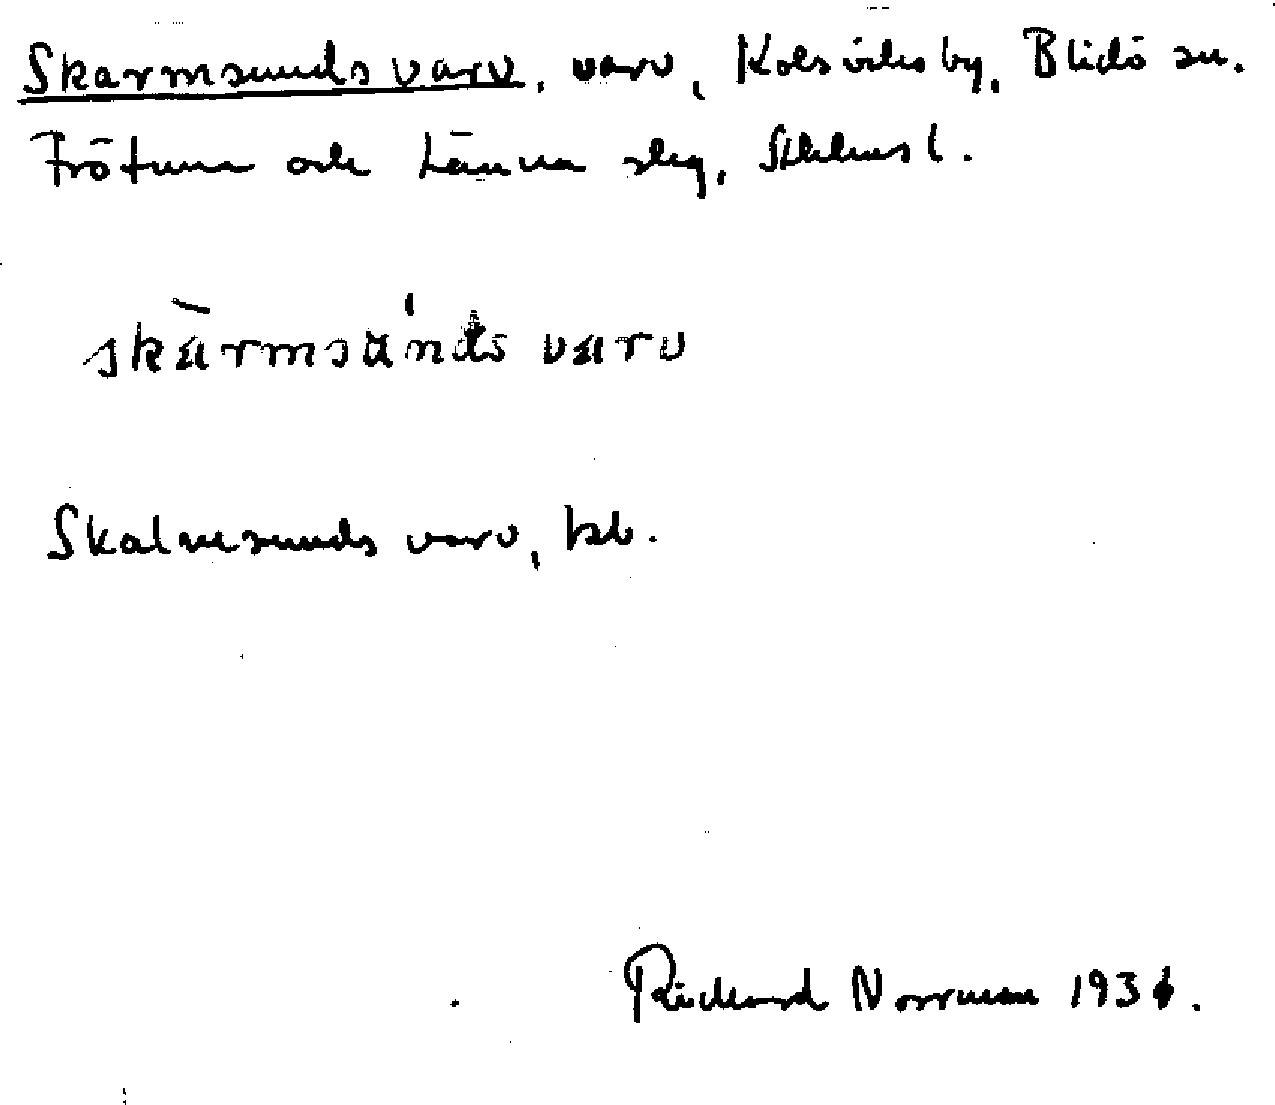 Skarmsunds varv, varv, Kolsviks by, Blidö sn.
Frötuna och Länna slg, Sthlms l.
skàrmsúnds varv
Skalmsunds varv, kb.
Rickard Norrman 1936.